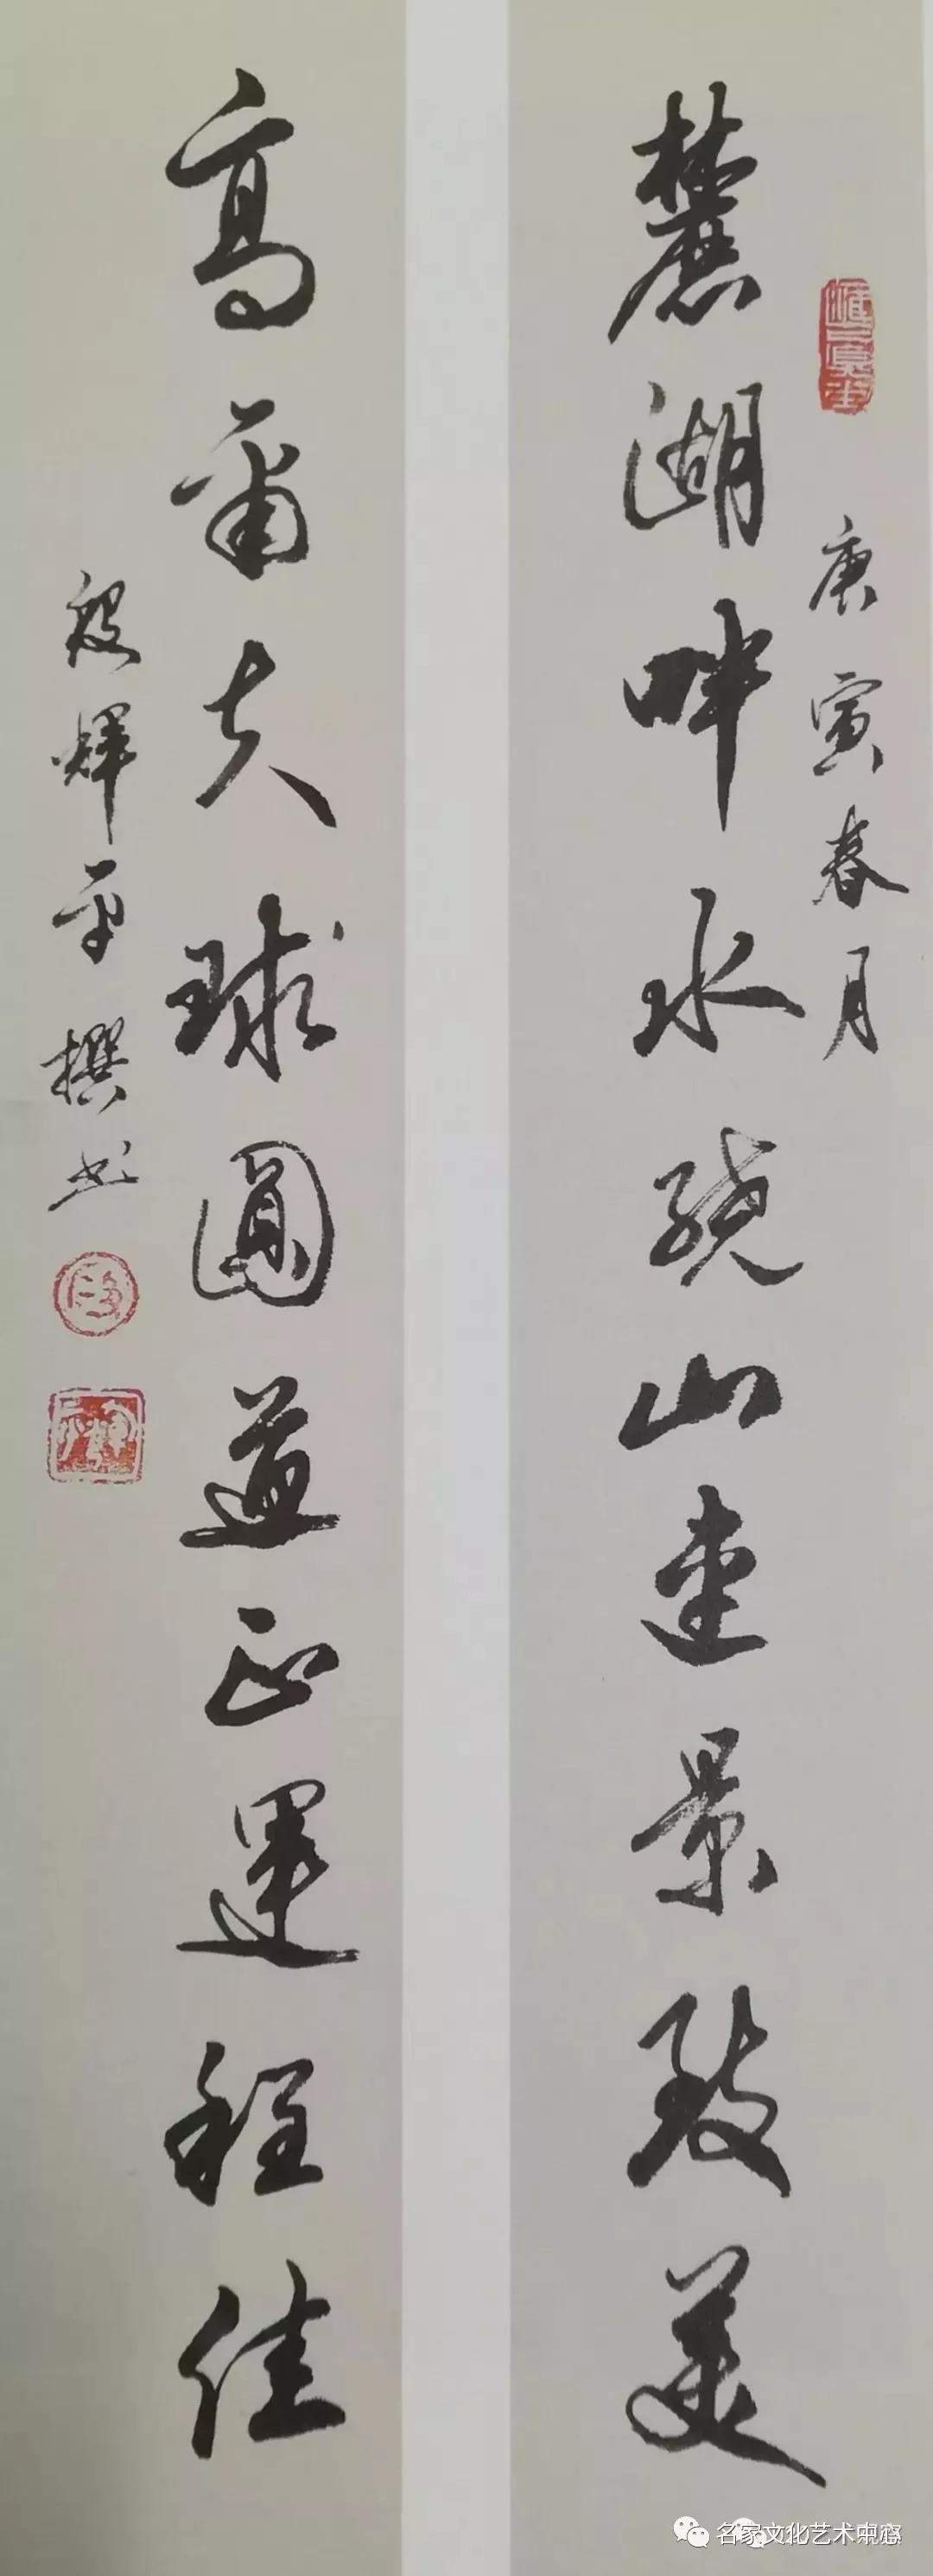 庚寅春月
麓湖畔水绕山连景致美
高尔夫球圆道正运程佳
段辉平撰书
名家文化艺术中心